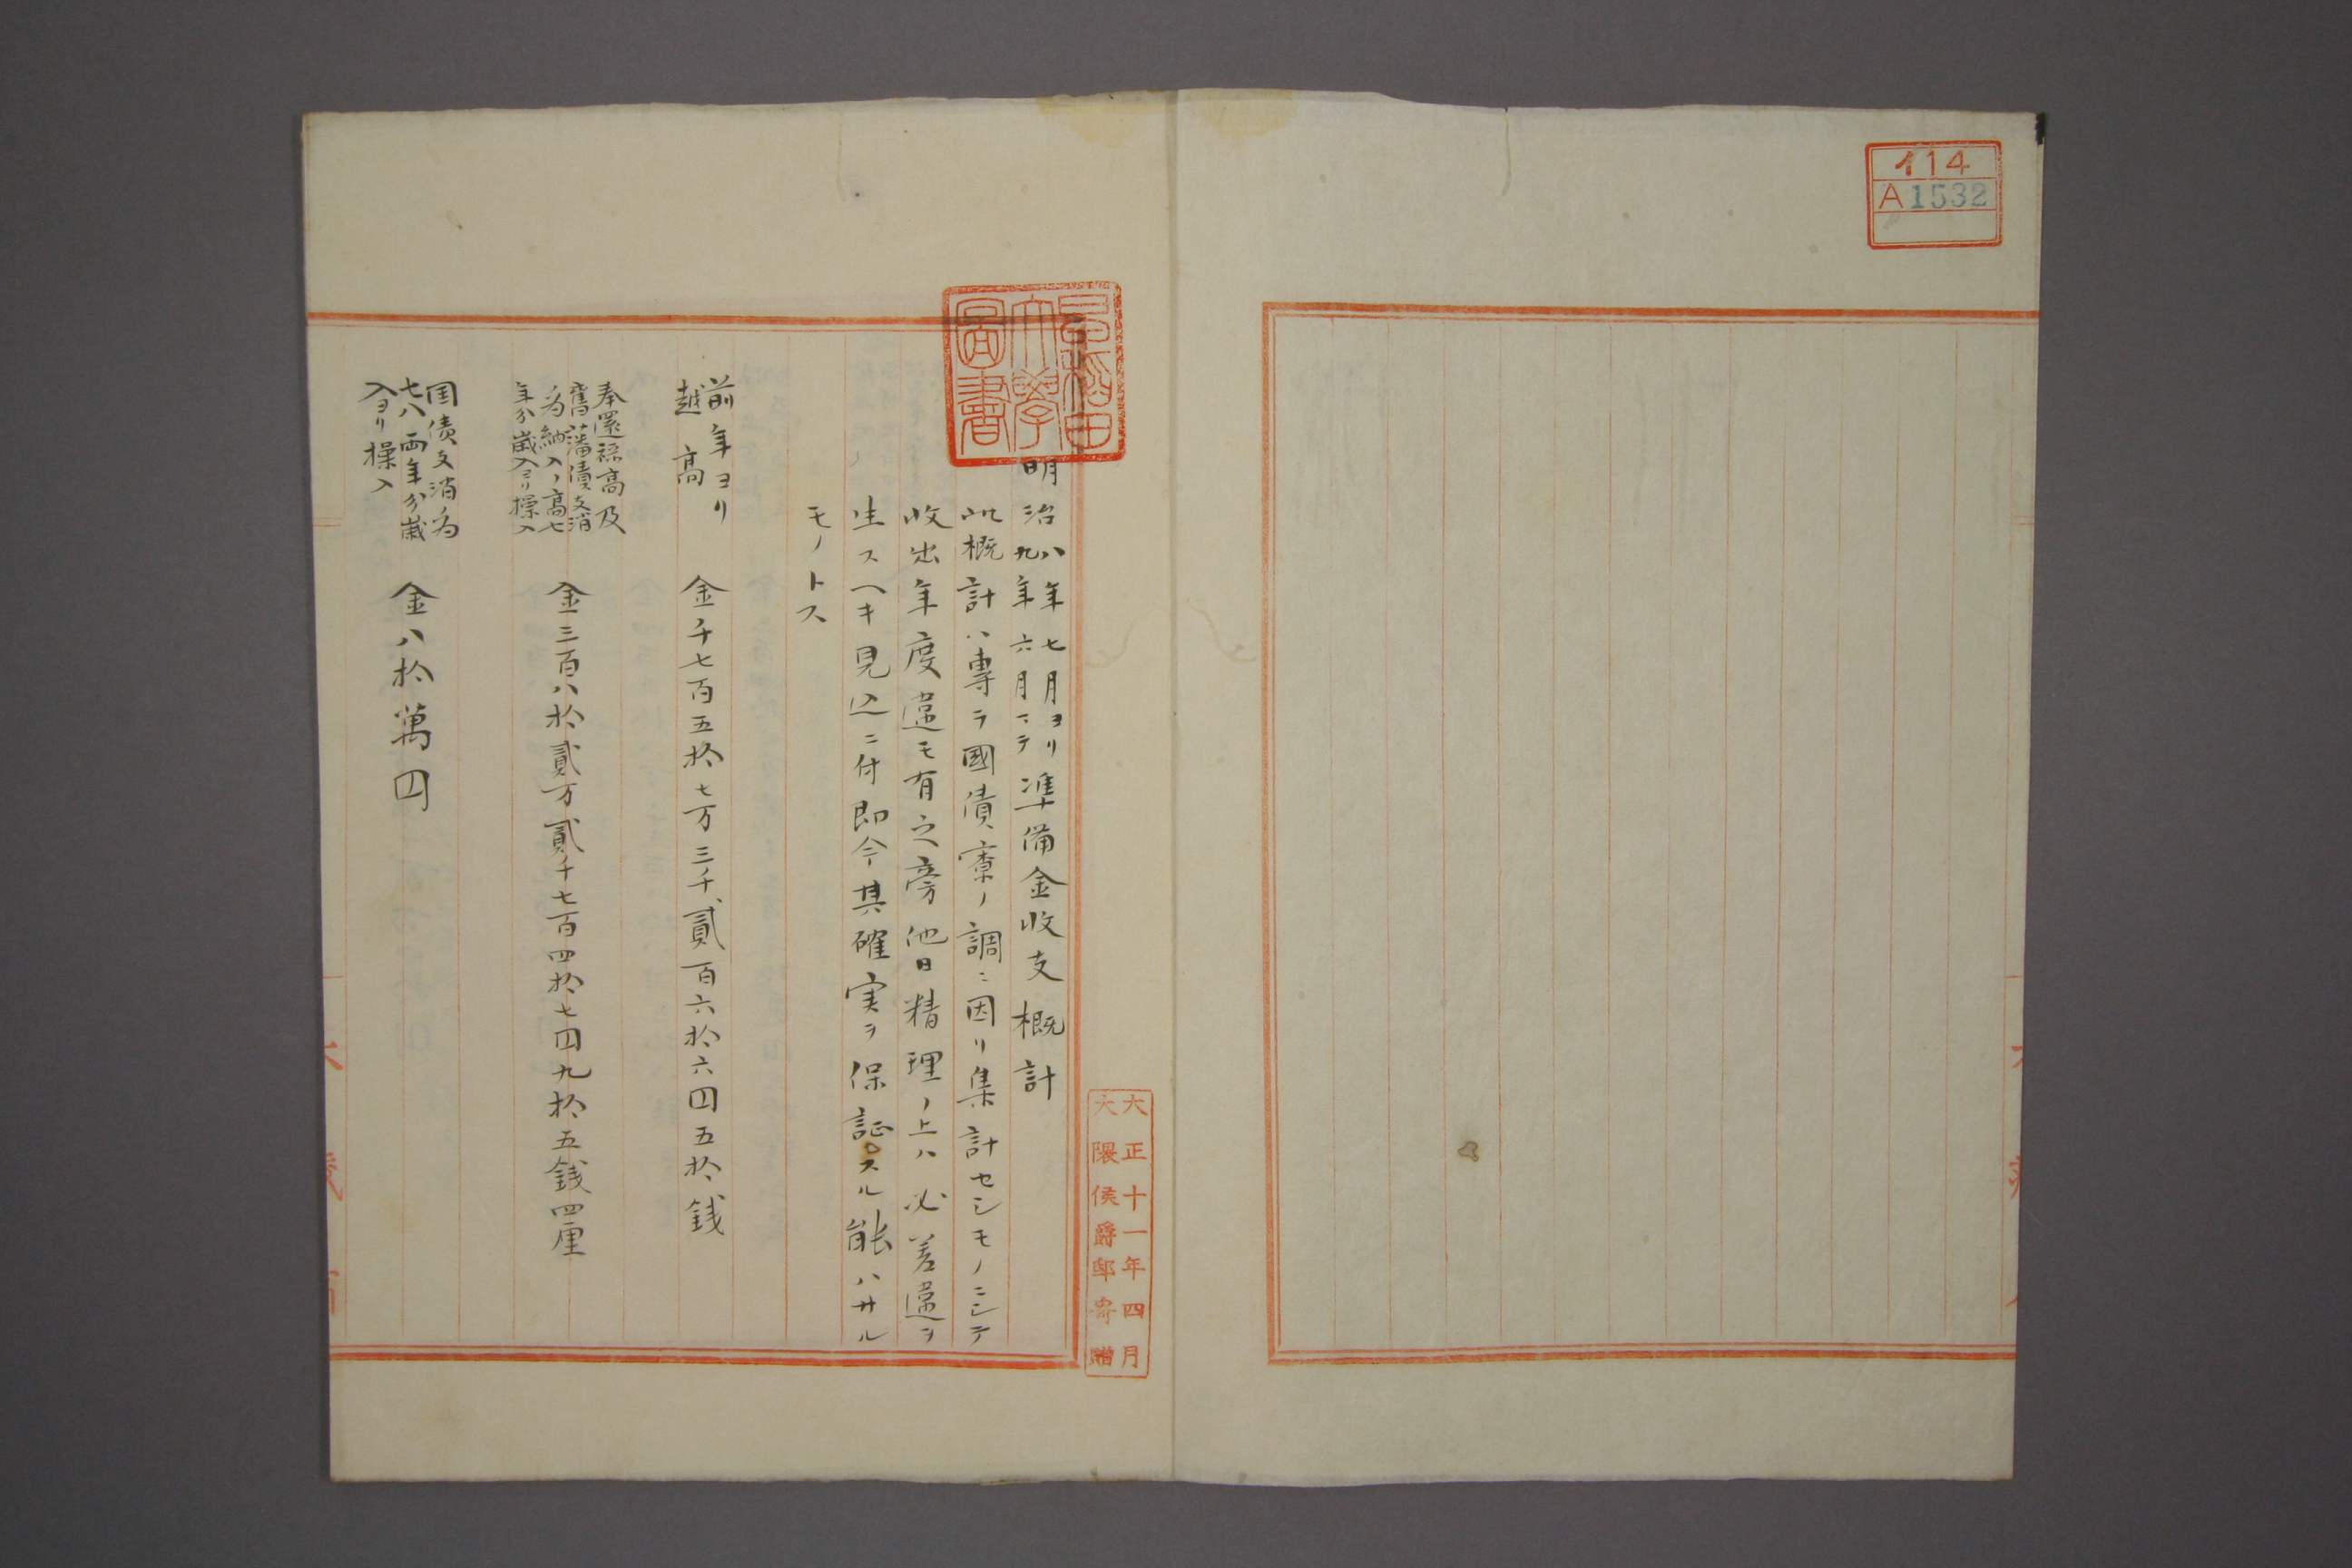 イ14
A1532
早稲田
大學
圖書
大正十一年四月
大隈侯爵邸寄贈
明治八年七月ヨリ
九年六月マテ
準備金收支概計
此概計ハ專ラ國債寮ノ調ニ因リ集計セシモノニシテ
收出年度違モ有之旁他日精理ノ上ハ必差違ヲ
生スヘキ見込ニ付即今其確実ヲ保証スル能ハサル
モノトス
前年ヨリ
越高
金千七百五拾七万三千貳百六拾六円五拾銭
奉還禄高及
舊藩債支消
ノ為納入ノ高七
年分歳入ヨリ操入
金三百八拾貳万貳千七百四拾七円九拾五銭四厘
国債支消ノ為
七八両年分歳
入ヨリ操入
金八拾萬円